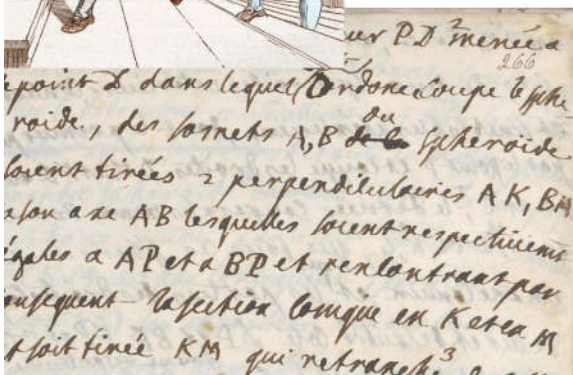 ur PD² menée a
266
point D dans lequel l'ordonnée coupe le sphe
roide, des somets A, B du spheroide
soient tirées 2 perpendiculaires AK, BM
a son axe AB lesquelles soient respectivemt
égales a AP et a BP et rencontrant par
onsequent la section conique en K et en M
t soit tirée KM qui retranche³